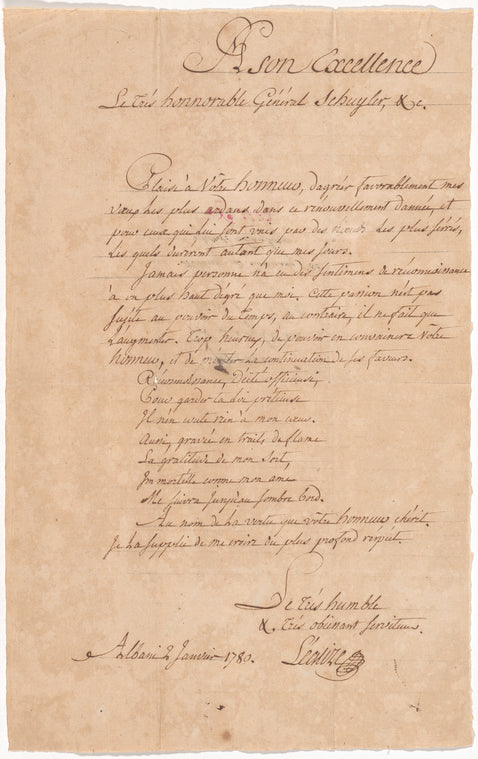 A son Excellence
Le trés honnorable Général Schuyler, &c.
Plaise à Votre honneur, d'agréér favorablement mes
vœux les plus ardans dans ce renouvellement d'année, et
pour ceux qui lui sont unis par des nœuds les plus serrés,
Les quels dureront autant que mes jours.
Jamais personne n'a eu des sentimens de réconnoissance
à un plus haut dégré que moi. Cette passion n'est pas
sujéte au pouvoir du temps, au contraire, il ne fait que
l'augmenter. Trop heureux, de pouvoir en convaincre Votre
honneur, et de mériter la continuation de ses faveurs.
Réconnoissance, Déité officieuse,
Pour garder la loi prétieuse
Il n'en coute rien à mon cœur.
Aussi, gravée en traits de flame
La gratitude de mon sort,
Immortelle comme mon ame
Me suivra jusqu'au sombre bord.
Au nom de la vertu que votre honneur chérit.
Je la supplie de me croire du plus profond réspect.
Le trés humble
&. trés obéissant serviteur.
Albani 2 Janvier 1780.